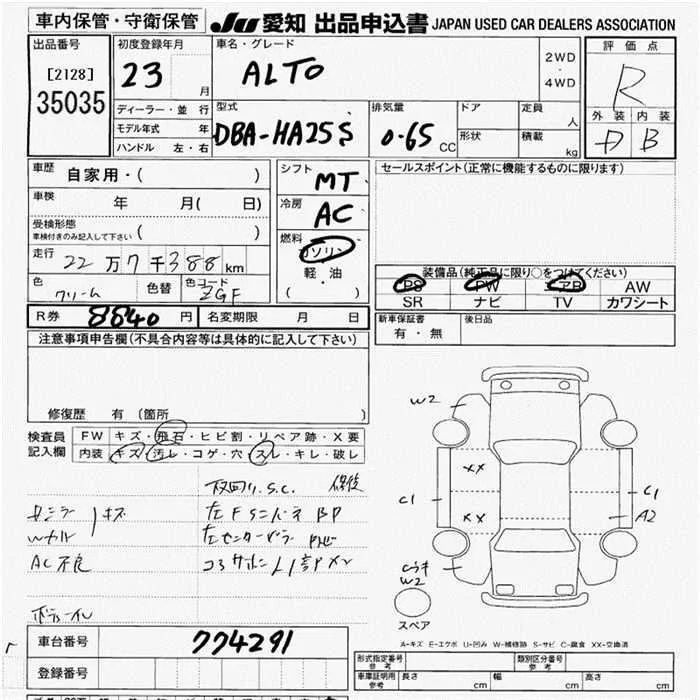 車内保管・守衛保管
JU 愛知 出品申込書 JAPAN USED CAR DEALERS ASSOCIATION
出品番号
[2128]
35035
初度登録年月
23 月
車名・グレード
ALTO
2WD
・
4WD
評価点
R
外装 内装
D B
ディーラー・並行
モデル年式 年
ハンドル 左・右
型式
DBA-HA25S
排気量
0.65 CC
ドア
形状
定員
人
積載
kg
車歴
自家用・( )
車検
年 月( 日)
受検形態
車検付きのみ記入して下さい ( )
走行
22万7千388km
色
クリーム
色替
色コード
ZGF
シフト
MT
冷房
AC
燃料
ガソリン
軽・油
( )
セールスポイント(正常に機能するものに限ります)
装備品(純正品に限り○をつけてください)
PS PW エアB AW
SR ナビ TV カワシート
R券 8840 円 名変期限 月 日
新車保証書
有・無
後日品
注意事項申告欄(不具合内容等は具体的に記入して下さい)
修復歴 有 (箇所 )
検査員
記入欄
FW キズ・飛石・ヒビ割・リペア跡・X要
内装 キズ・汚レ・コゲ・穴・スレ・キレ・破レ
キズ
AC不良
W2
XX
XX
C1
C1
A2
W2
スペア
A-キズ E-エクボ U-凹み W-補修跡 S-サビ C-腐食 XX-交換済
車台番号 774291
登録番号
形式指定番号
参考
類別区分番号
参考
車庫証明用
参考
長さ cm 幅 cm 高さ cm